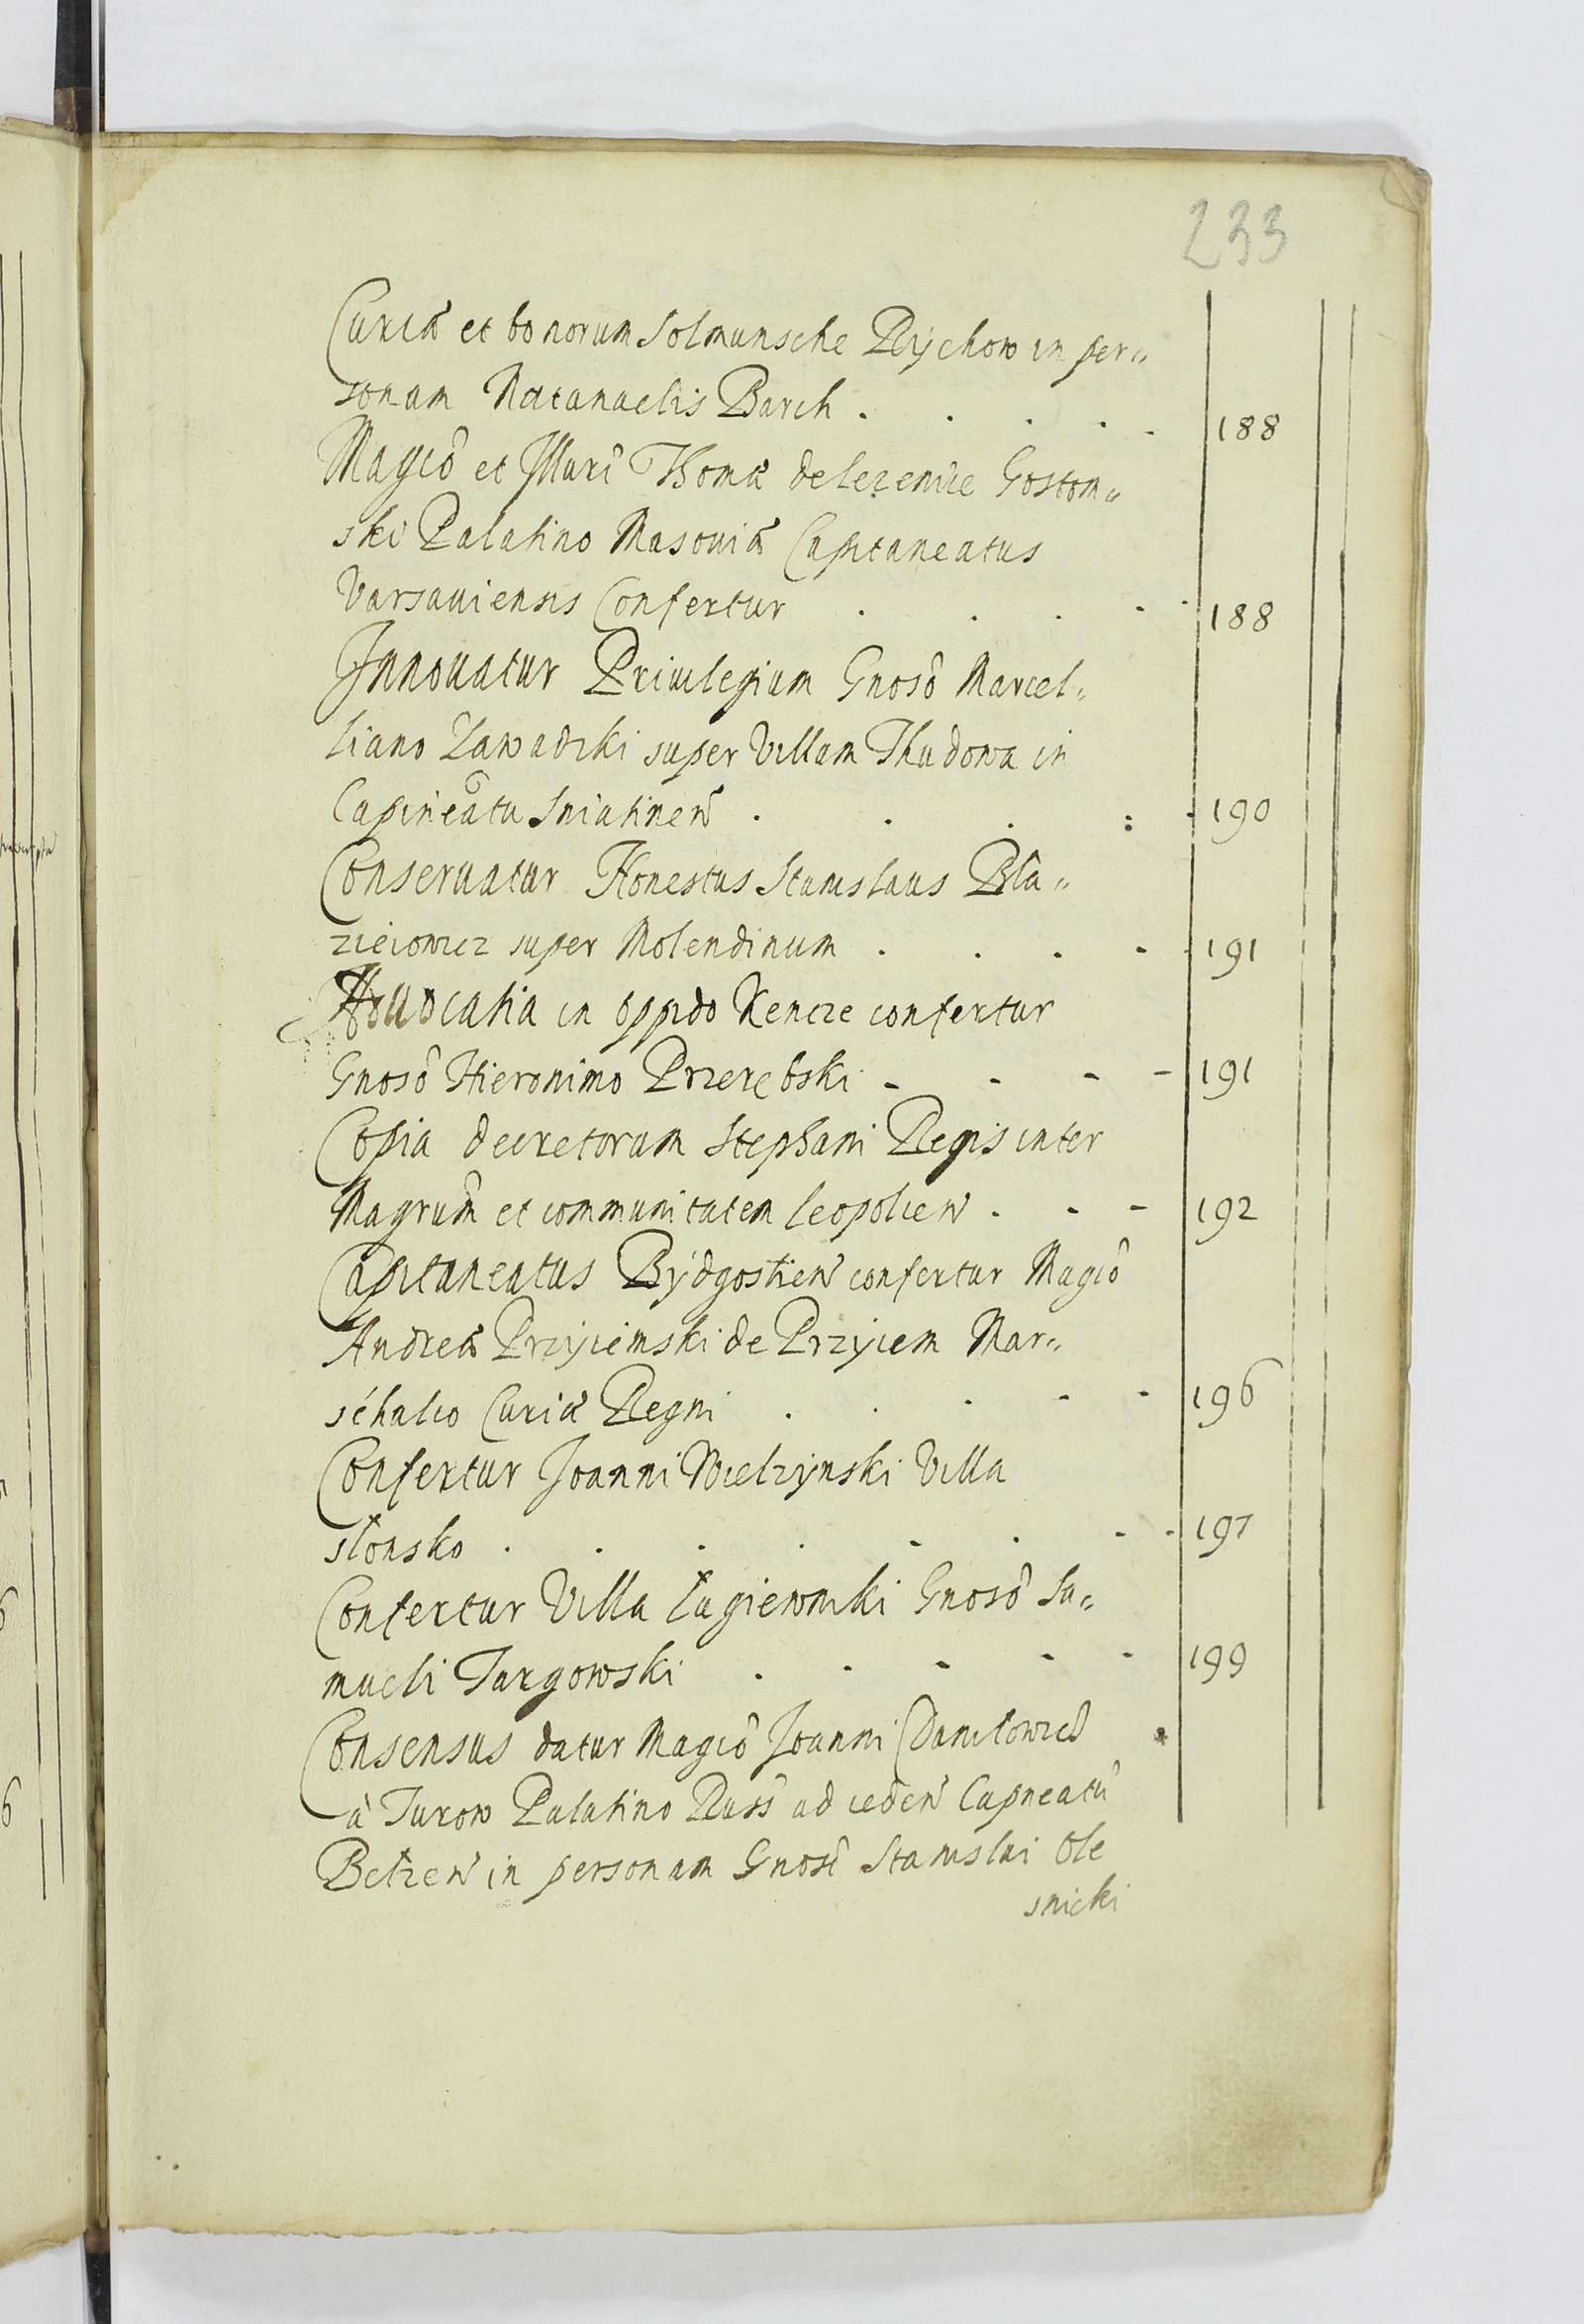 233
Curiæ et bonorum Solmunsche Rÿchow in per„
sonam Natanaelis Barch . . . . . 188
Magcô et Illuri Thomæ de lezenice Gostom„
ski Palatino Masouiæ Capitaneatus
Varsauiensis Confertur . . . . . 188
Innouatur Priuilegium Gnosô Marcel„
liano Zawadzki super Villam Thudowa in
Capineatu Sniatinen . . . : . 190
Conseruatur Honestus Stanislaus Bla„
zieiowicz super Molendinum . . . . . 191
Aduocatia in oppido Kencze confertur
Gnosô Hieronimo Przerębski - - - - 191
Copia decretorum Stephani Regis inter
Magrum et communitatem leopolien . - - 192
Capitaneatus Bÿdgostien confertur Magcô
Andreæ Przÿiemski de Przÿiem Mar„
schalco Curiæ Regni . . . - - 196
Confertur Joanni Wielzÿnski Villa
słonsko . . . . . . - - 197
Confertur Villa Łagiewniki Gnosô Sa„
mueli Targowski . . - - - 199
Consensus datur Magcô Joanni Daniłowicz
à Zurow Palatino Russ ad ceden Capneatu
Bełzen in personam Gnosi Stanislai Ole
snicki